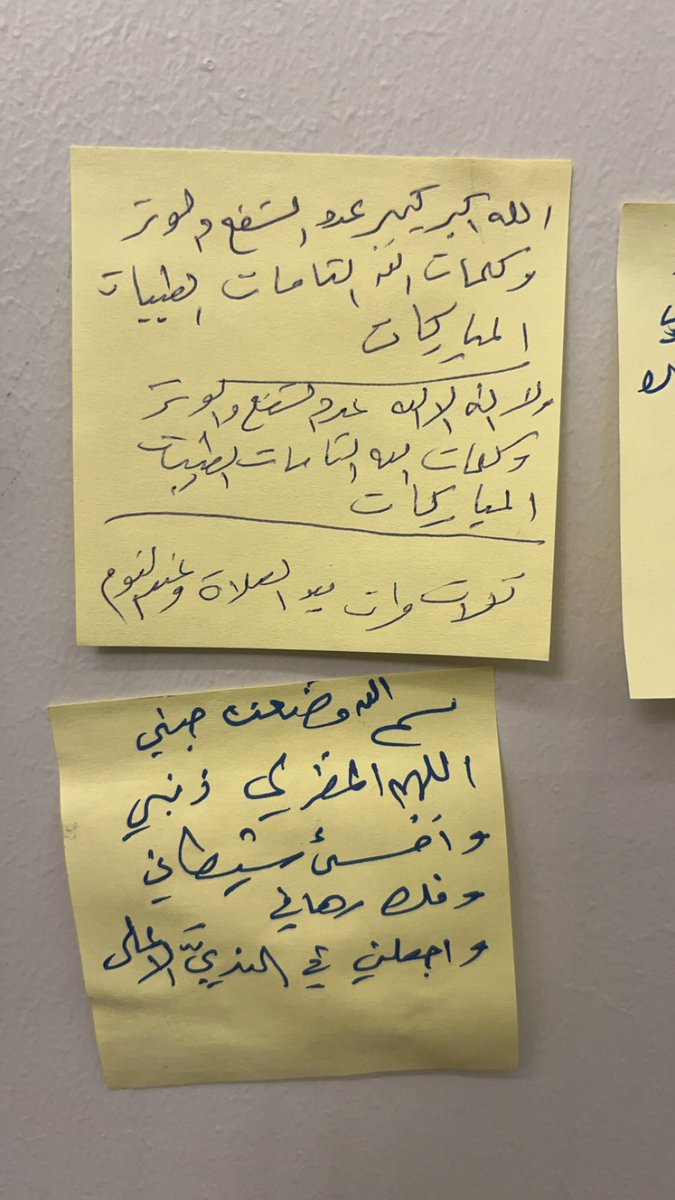 الله اكبر كبير عدد الشفع والوتر
وكلمات الله التامات الطيبات
المباركات
ولا اله الا الله عدد الشفع والوتر
وكلمات الله التامات الطيبات
المباركات
ثلاث مرات بعد الصلاة وعند النوم
بسم الله وضعت جنبي
اللهم اغفر لي ذنبي
وأخسئ شيطاني
وفك رهاني
واجعلني في النديّ الاعلى